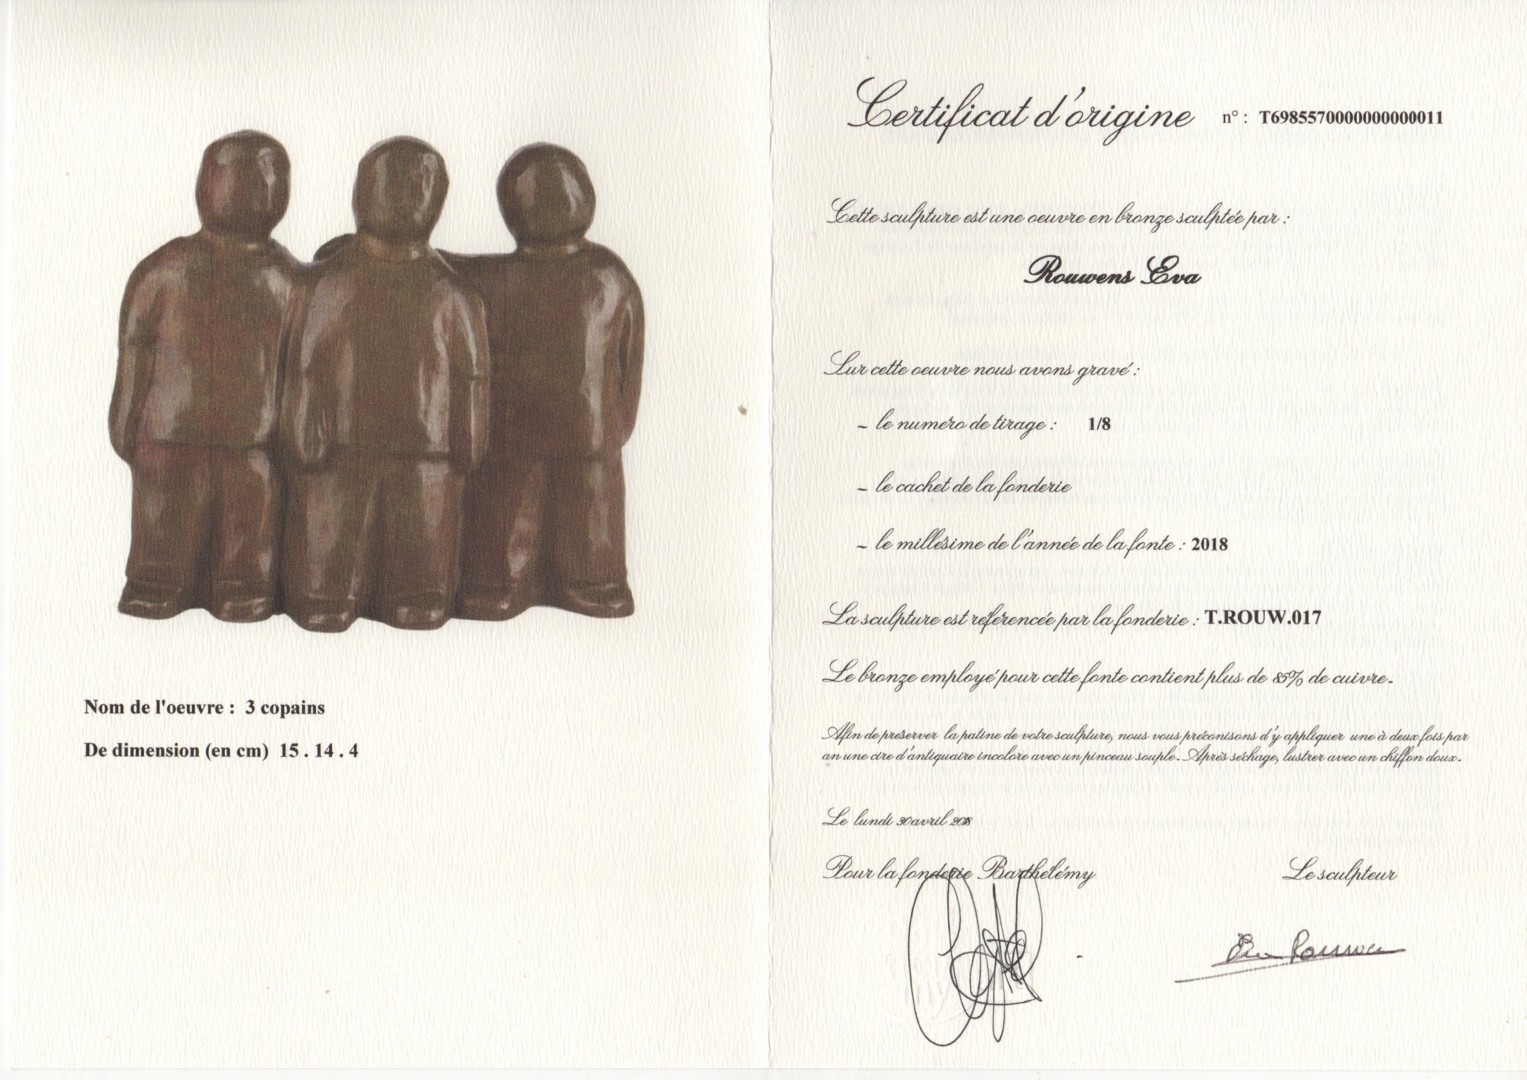 Nom de l'oeuvre : 3 copains
De dimension (en cm) 15 . 14 . 4
Certificat d'origine n° : T6985570000000000011
Cette sculpture est une oeuvre en bronze sculptée par :
Rouwens Eva
Sur cette oeuvre nous avons gravé :
- le numéro de tirage : 1/8
- le cachet de la fonderie
- le millésime de l'année de la fonte : 2018
La sculpture est référencée par la fonderie : T.ROUW.017
Le bronze employé pour cette fonte contient plus de 85% de cuivre.
Afin de préserver la patine de votre sculpture, nous vous préconisons d'y appliquer une à deux fois par
an une cire d'antiquaire incolore avec un pinceau souple. Après séchage, lustrer avec un chiffon doux.
Le lundi 30 avril 2018
Pour la fonderie Barthélémy Le sculpteur